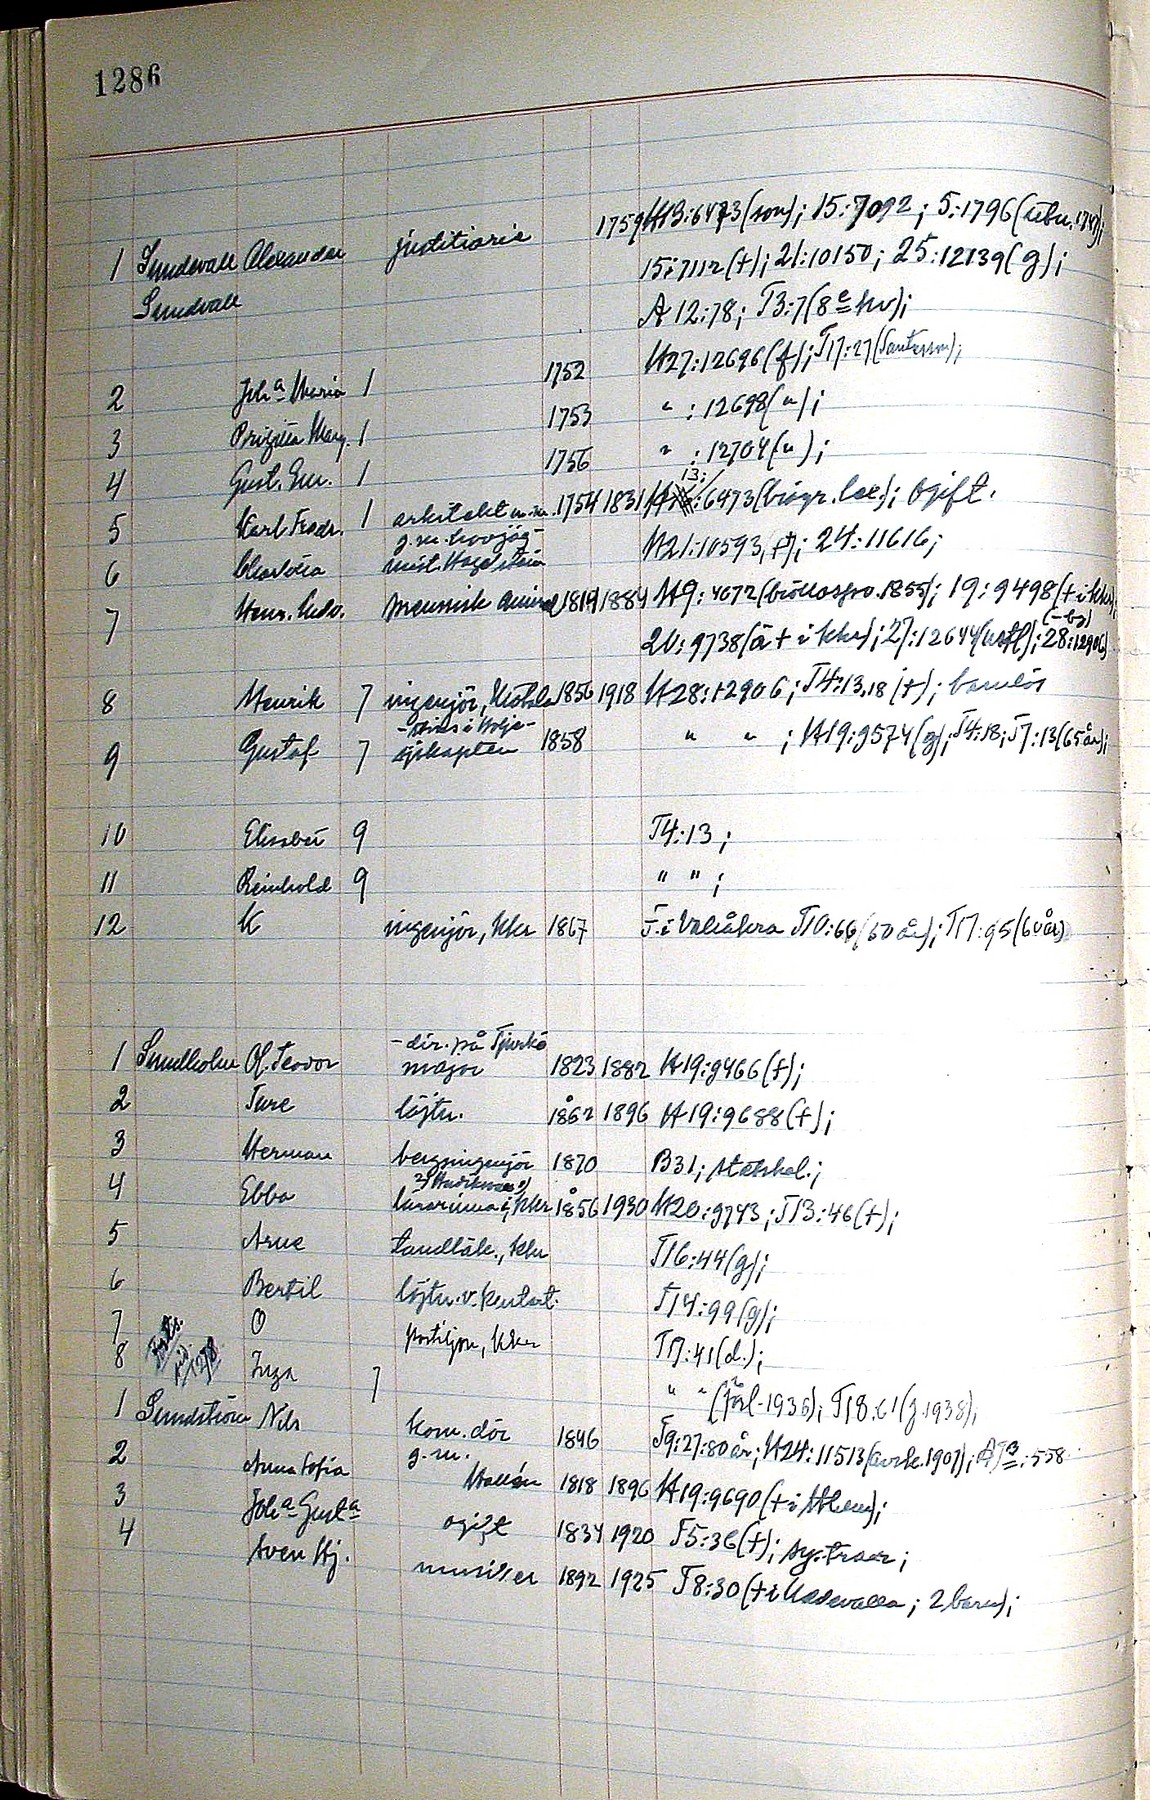 1286
1 Sundevall Alexander justitiarie 1759 H13:6473(son); 15:7092; 5:1796(utn. 1747);
Sundvall 15:7112(†); 21:10150; 25:12139(g);
A 12:78; T3:7(8e hv);
2 Joha Maria 1 1752 H27:12696(f); T17:27(Santesson);
3 Brigitta Marg. 1 1753 " :12698(");
4 Gust. Em. 1 1756 " :12704(");
5 Karl Fredr. 1 arkitekt m.m. 1754 1831 H 13:6473(biogr. lex.); ogift.
6 Charlotta g.m. hovjäg- mäst. Hagelstam H21:10593, 24:11616;
7 Henr. Ludv. 1814 1884 H9:4672(bröllospro. 1855); 19:9498(† i Kkr);
20:9738(ä † i Kkr); 27:12644 28:12906)
8 Henrik 7 ingenjör, 1856 1918 H28:12906; T4:13,18(†); barnlös
9 Gustaf 7 sjökapten 1858 " " ; H19:9574(g); T4:18; T7:13(65 år);
10 Elisabet 9 T4:13;
11 Reinhold 9 " " ;
12 K ingenjör, Kkr 1867 T. i Vallåkra T10:66(50 år); T17:95(60 år)
1 Sundholm Ol. Teodor -dir. på Tjurkö major 1823 1882 H19:9466(†);
2 Ture löjtn. 1862 1896 H19:9688(†);
3 Herman bergsingenjör 1870 B31;
4 Ebba lärarinna i Kkr 1856 1930 H20:9743; T13:46(†);
5 Arne tandläk., Kkr T16:44(g);
6 Bertil löjtn. v. kustart. T14:99(g);
7 O postiljon, Kkr T17:41(d.);
8 Inga 7 " " (förl-1936); T18.61(g.1938);
1 Sundström Nils kom. dör 1846 T9:27:80 år; H24:11513(avsk. 1907); :558
2 Anna Sofia g.m. Hallén 1818 1896 H19:9690(† i Sthlm);
3 Joha Gusta ogift 1834 1920 T5:36(†);
4 Sven Hj. musiker 1892 1925 T8:30(† i Uddevalla; 2 barn);